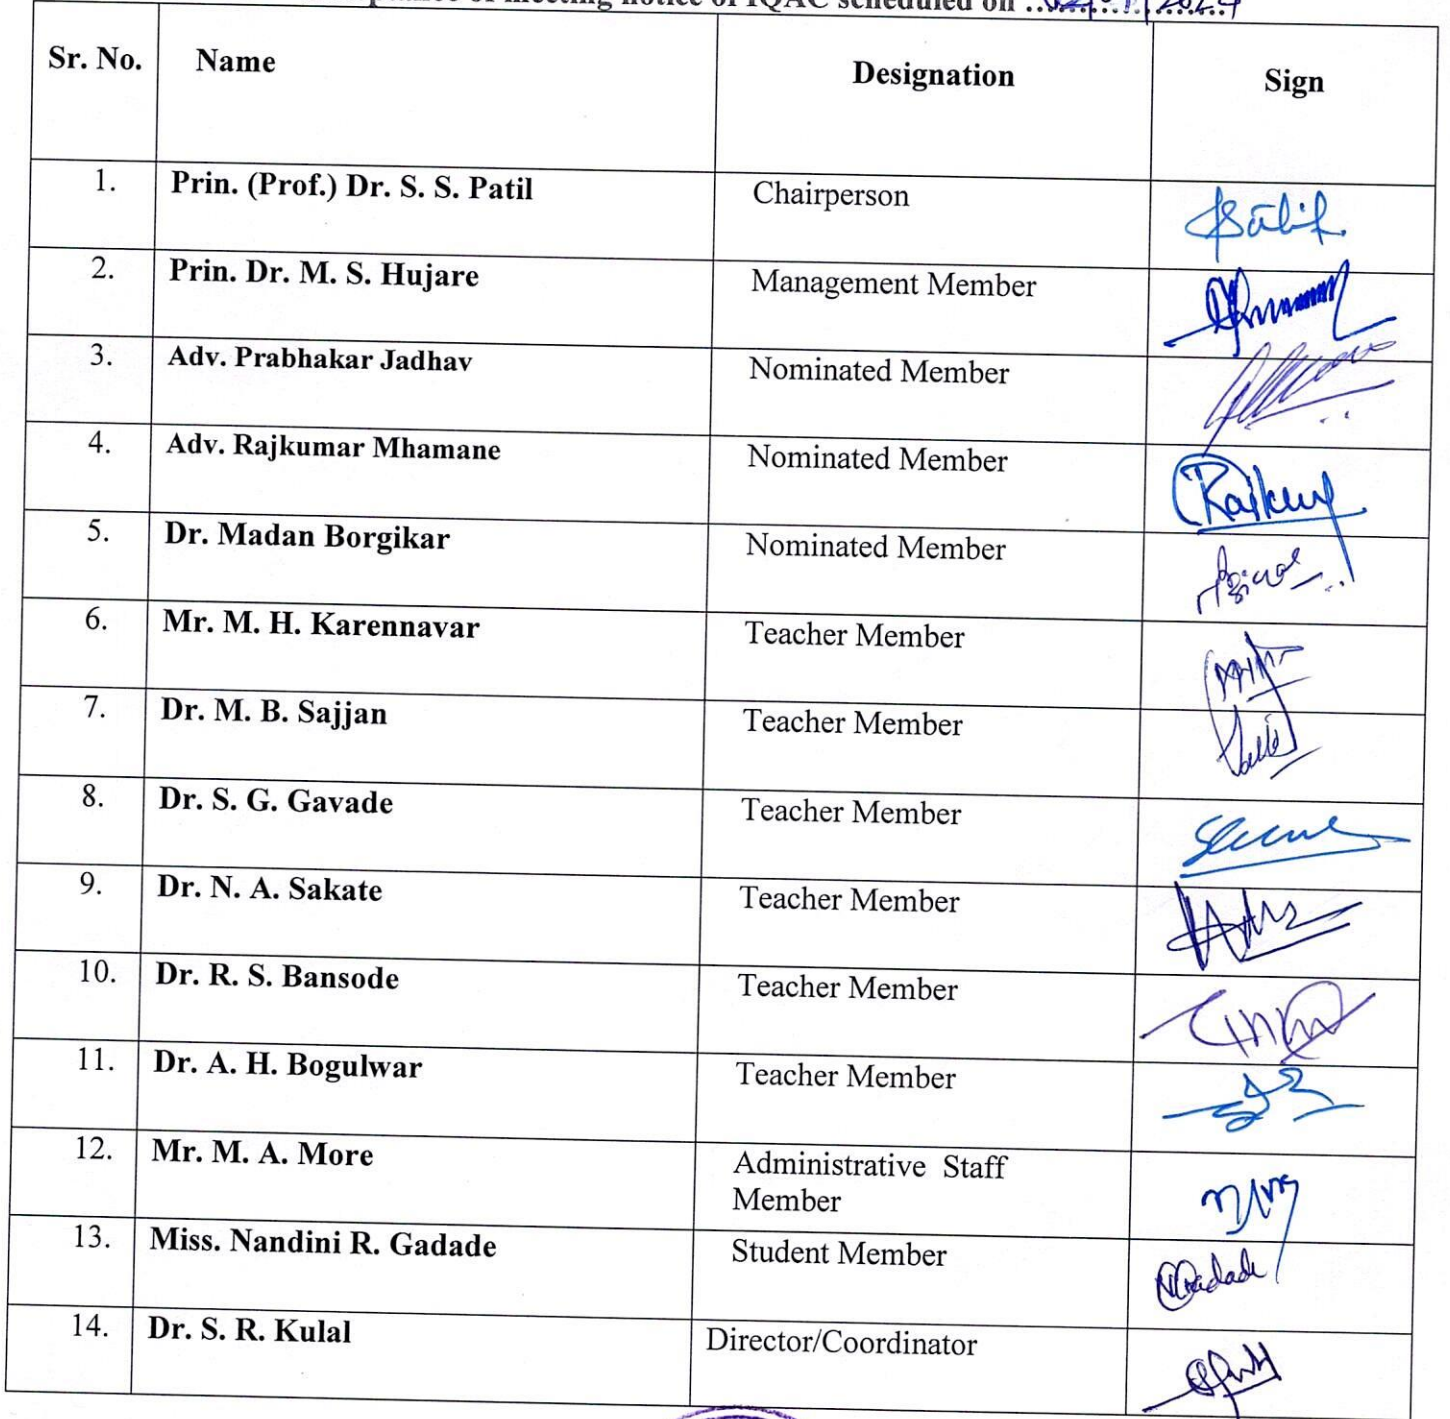 of meeting notice of IQAC scheduled on
Sr. No. Name Designation Sign
1. Prin. (Prof.) Dr. S. S. Patil Chairperson
2. Prin. Dr. M. S. Hujare Management Member
3. Adv. Prabhakar Jadhav Nominated Member
4. Adv. Rajkumar Mhamane Nominated Member
5. Dr. Madan Borgikar Nominated Member
6. Mr. M. H. Karennavar Teacher Member
7. Dr. M. B. Sajjan Teacher Member
8. Dr. S. G. Gavade Teacher Member
9. Dr. N. A. Sakate Teacher Member
10. Dr. R. S. Bansode Teacher Member
11. Dr. A. H. Bogulwar Teacher Member
12. Mr. M. A. More Administrative Staff
Member
13. Miss. Nandini R. Gadade Student Member NGadade
14. Dr. S. R. Kulal Director/Coordinator